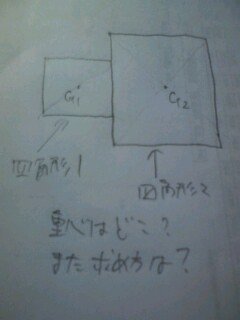 G₁
G₂
四角形1
四角形2
重心はどこ?
また求め方は?